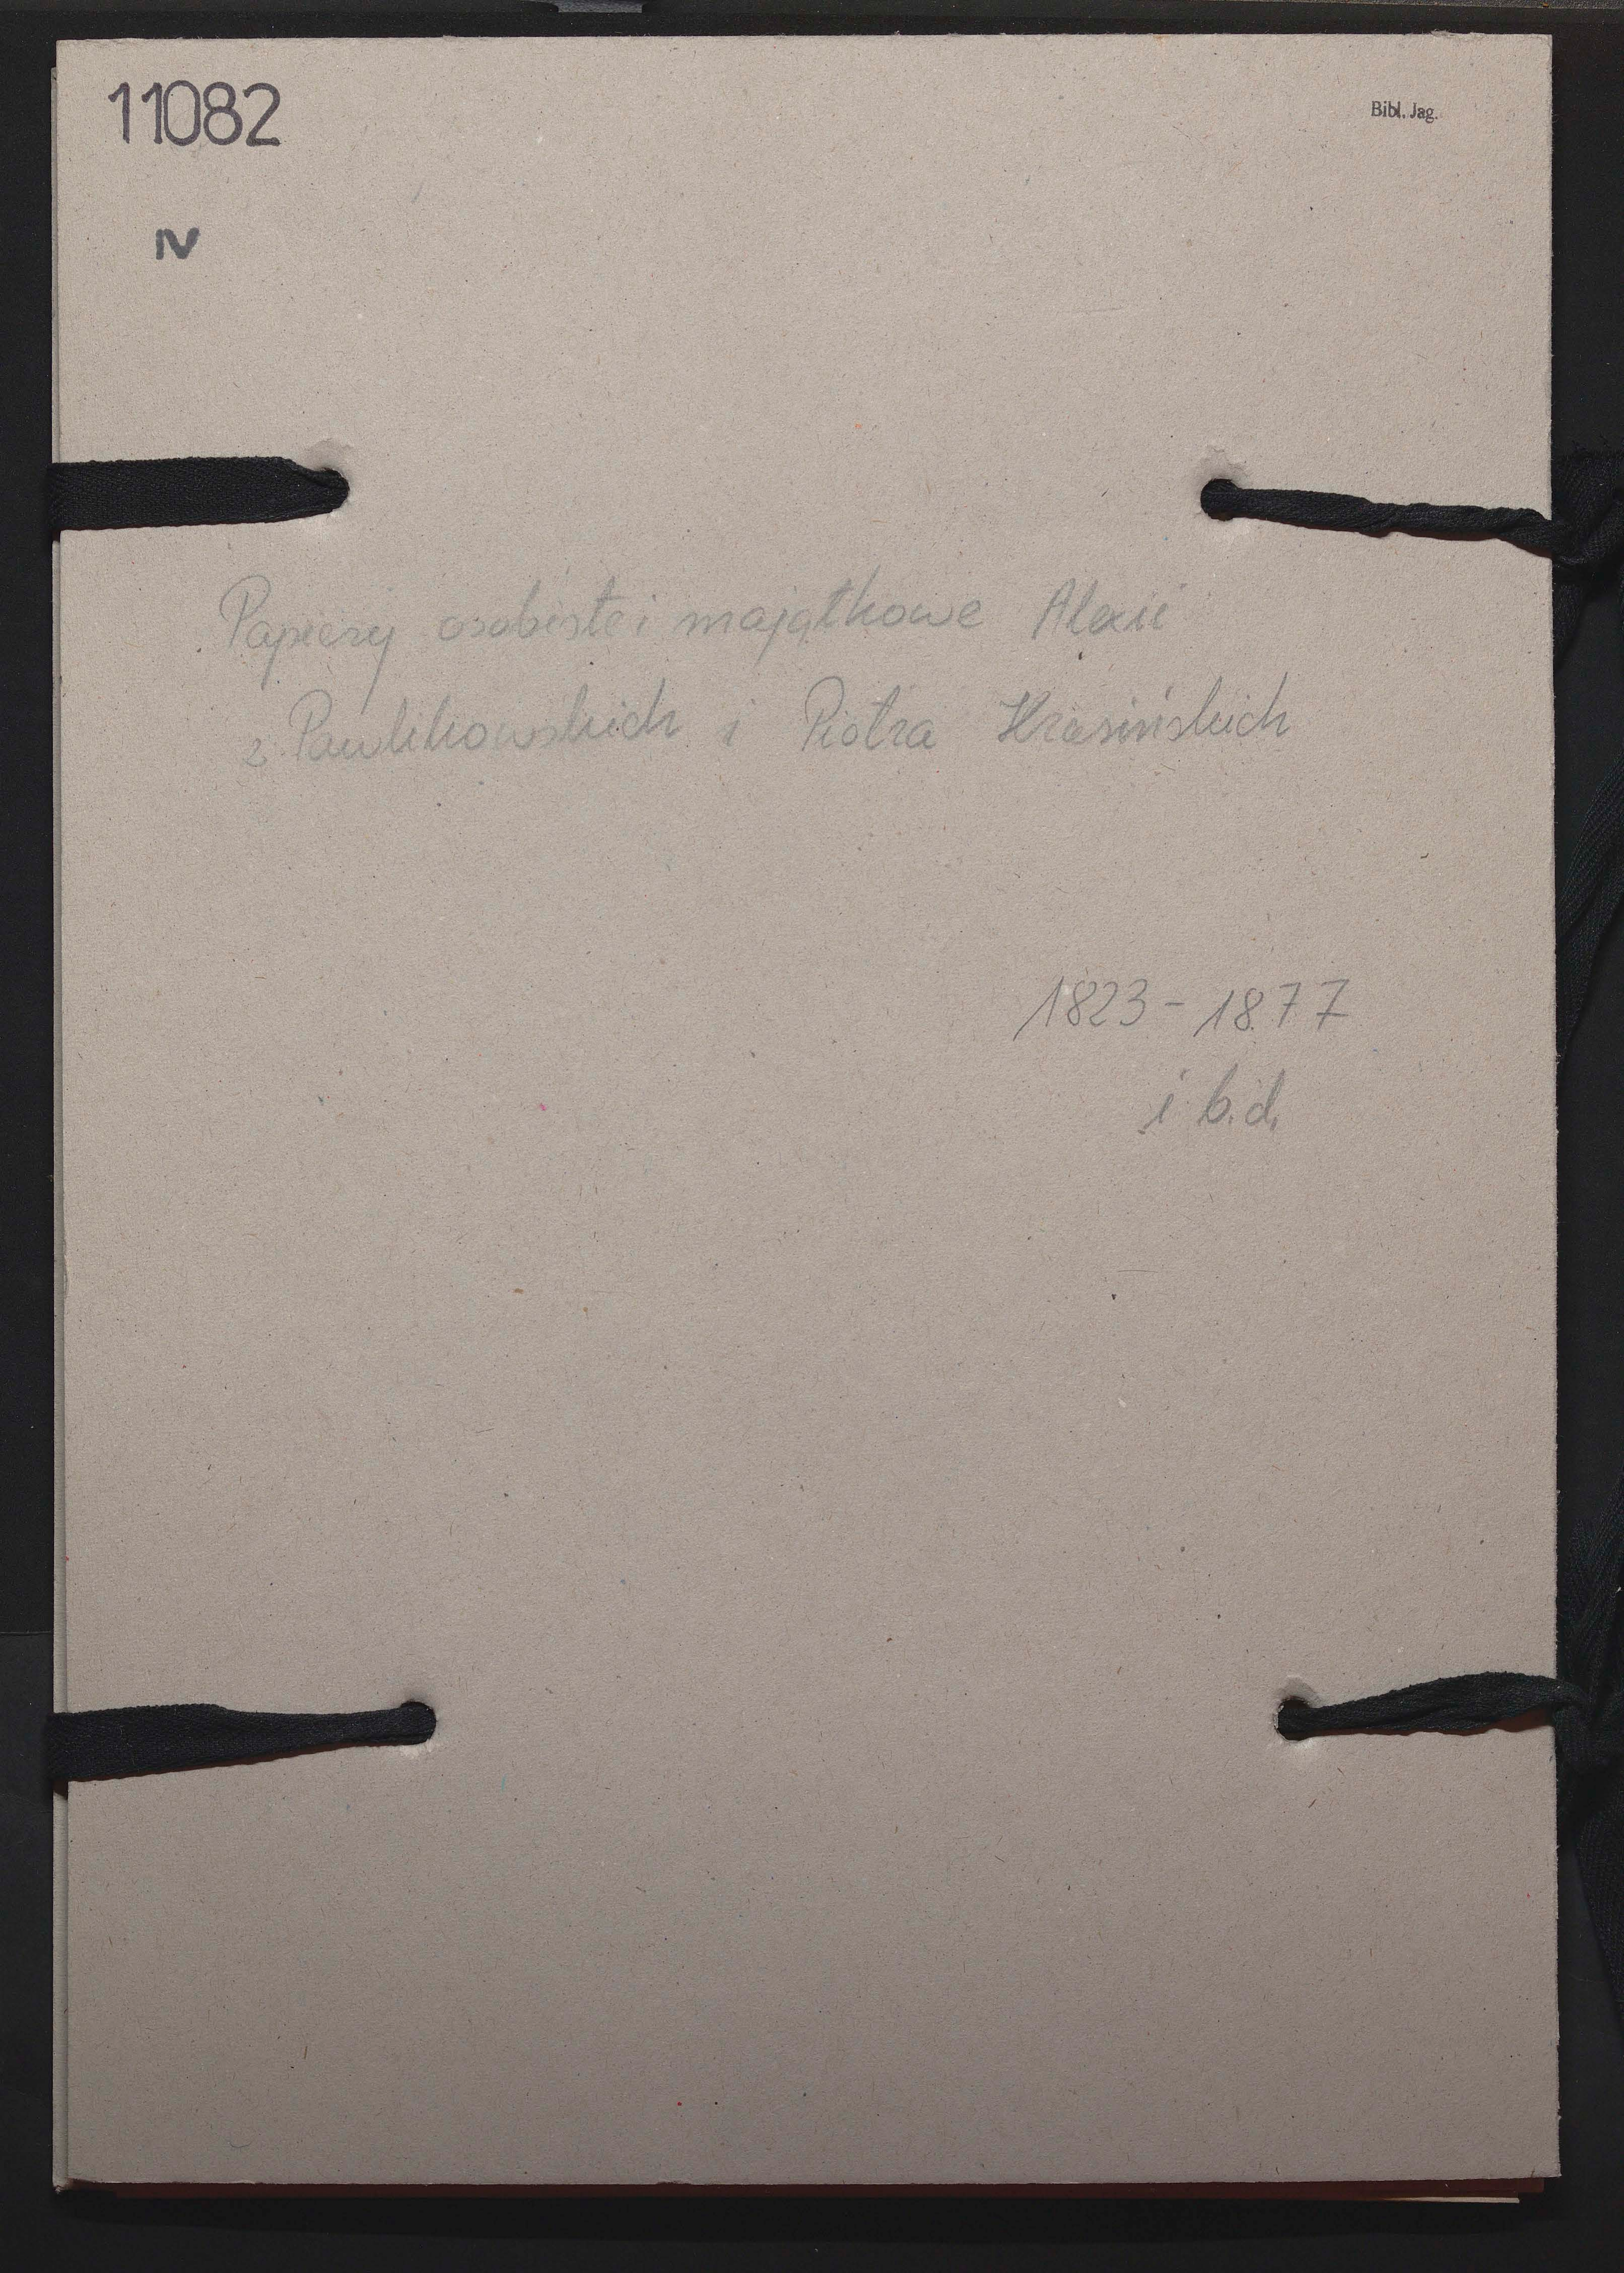 11082
Bibl. Jag.
IV
Papiery osobiste i majątkowe Alexii
z Pawlikowskich i Piotra Krasińskich
1823 - 1877
i b.d.